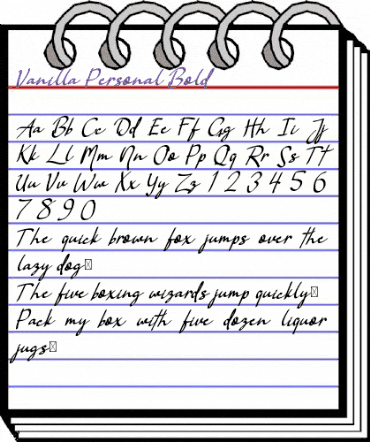 Vanilla Personal Bold
Aa Bb Cc Dd Ee Ff Gg Hh Ii Jj
Kk Ll Mm Nn Oo Pp Qq Rr Ss Tt
Uu Vv Ww Xx Yy Zz 1 2 3 4 5 6
7 8 9 0
The quick brown fox jumps over the
lazy dog▯
The five boxing wizards jump quickly▯
Pack my box with five dozen liquor
jugs▯